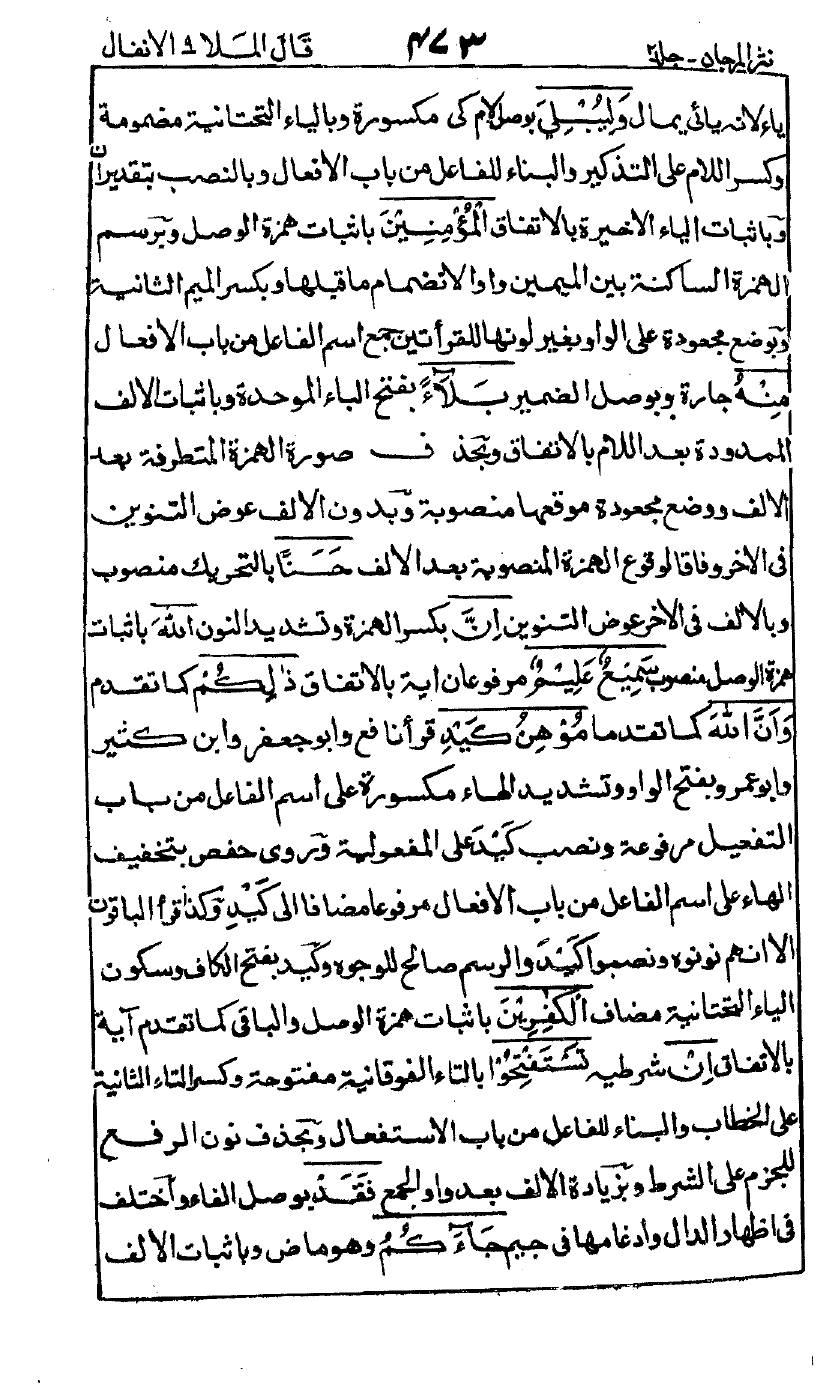 نثر المرجان - جلد٢ ٤٧٣ قال الملا ٩ الانفال
ياء لانه يائى يمال وَلِيُبْلِيَ بوصل لام كى مكسورة وبالياء التحتانية مضمومة
وكسر اللام على التذكير والبناء للفاعل من باب الافعال وبالنصب بتقدير ان
وباثبات الياء الاخيرة بالاتفاق الْمُؤْمِنِيْنَ باثبات همزة الوصل وبرسم
الهمزة الساكنة بين الميمين واوا لانضمام ما قبلها وبكسر الميم الثانية
وبوضع مجعودة على الواو بغير لونها للقرأتين جمع اسم الفاعل من باب الافعال
مِنْهُ جارة وبوصل الضمير بَلَآءً بفتح الباء الموحدة وباثبات الالف
الممدودة بعد اللام بالاتفاق وبحذف صورة الهمزة المتطرفة بعد
الالف ووضع مجعودة موقعها منصوبة وبدون الالف عوض التنوين
فى الاخر وفاقا لوقوع الهمزة المنصوبة بعد الالف حَسَنًا بالتحريك منصوب
وبالالف فى الاخر عوض التنوين اِنَّ بكسر الهمزة وتشديد النون اللهَ باثبات
همزة الوصل منصوب سَمِيْعٌ عَلِيْمٌ مرفوعان اية بالاتفاق ذٰلِكُمْ كما تقدم
وَاَنَّ اللهَ كما تقدما مُوْهِنُ كَيْدِ قرأ نافع وابو جعفر وابن كثير
وابو عمرو بفتح الواو وتشديد الهاء مكسورة على اسم الفاعل من باب
التفعيل مرفوعة ونصب كَيْدَ على المفعولية وروى حفص بتخفيف
الهاء على اسم الفاعل من باب الافعال مرفوعا مضافا الى كَيْدِ وكذا قرأ الباقون
الا انهم نونوه ونصبوا كَيْدَ والرسم صالح للوجوه وكيد بفتح الكاف وسكون
الياء التحتانية مضاف الْكٰفِرِيْنَ باثبات همزة الوصل والباقى كما تقدم آية
بالاتفاق اِنْ شرطيه تَسْتَفْتِحُوْا بالتاء الفوقانية مفتوحة وكسر التاء الثانية
على الخطاب والبناء للفاعل من باب الاستفعال وبحذف نون الرفع
للجزم على الشرط وبزيادة الالف بعد واو الجمع فَقَدْ بوصل الفاء واختلف
فى اظهار الدال وادغامها فى جيم جَآءَكُمُ وهو ماض وباثبات الالف